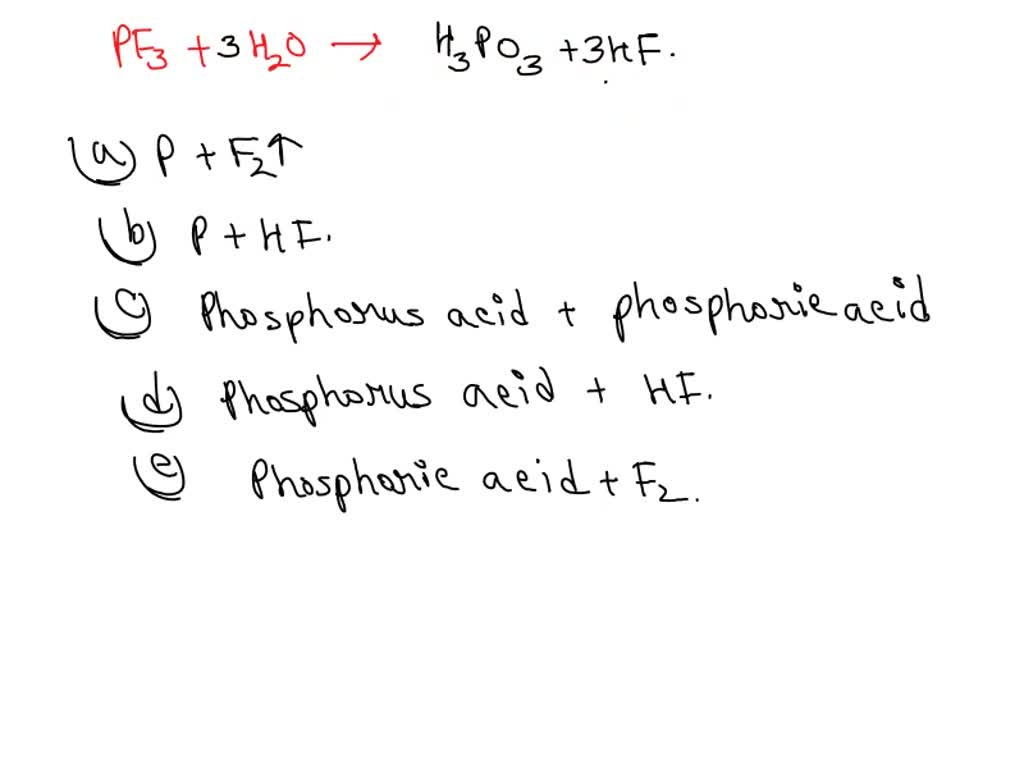 PF₃ + 3H₂O → H₃PO₃ + 3HF.
(a) P + F₂↑
(b) P + HF.
(c) Phosphorus acid + phosphoric acid
(d) Phosphorus acid + HF.
(e) Phosphoric acid + F₂.